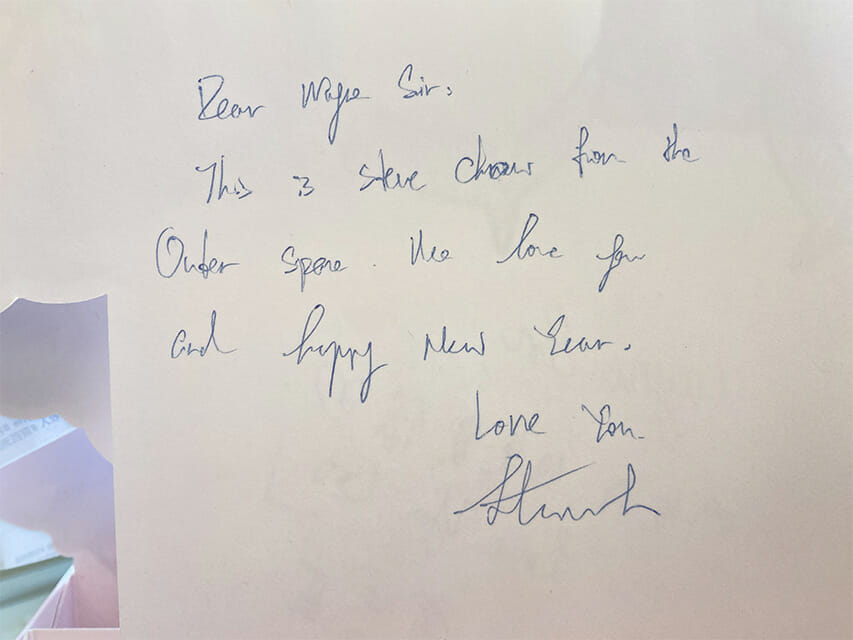 Dear Sir:
This is Steve from the
Outer space. We love you
and happy New Year.
Love You.